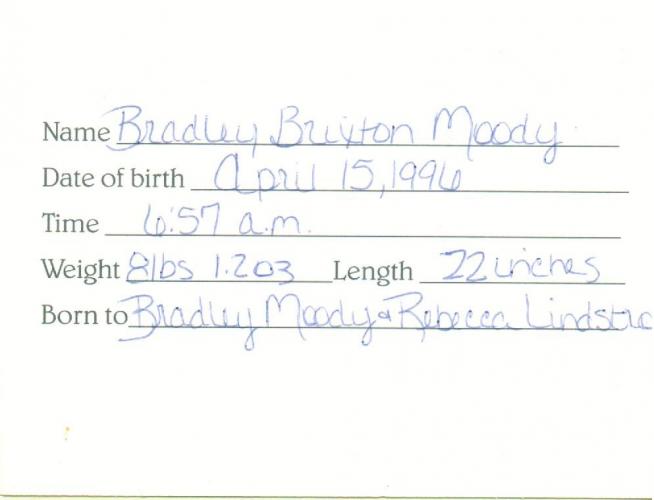 Name Bradley Brixton Moody
Date of birth April 15, 1996
Time 6:57 a.m.
Weight 8lbs 1.2oz Length 22 inches
Born to Bradley Moody & Rebecca